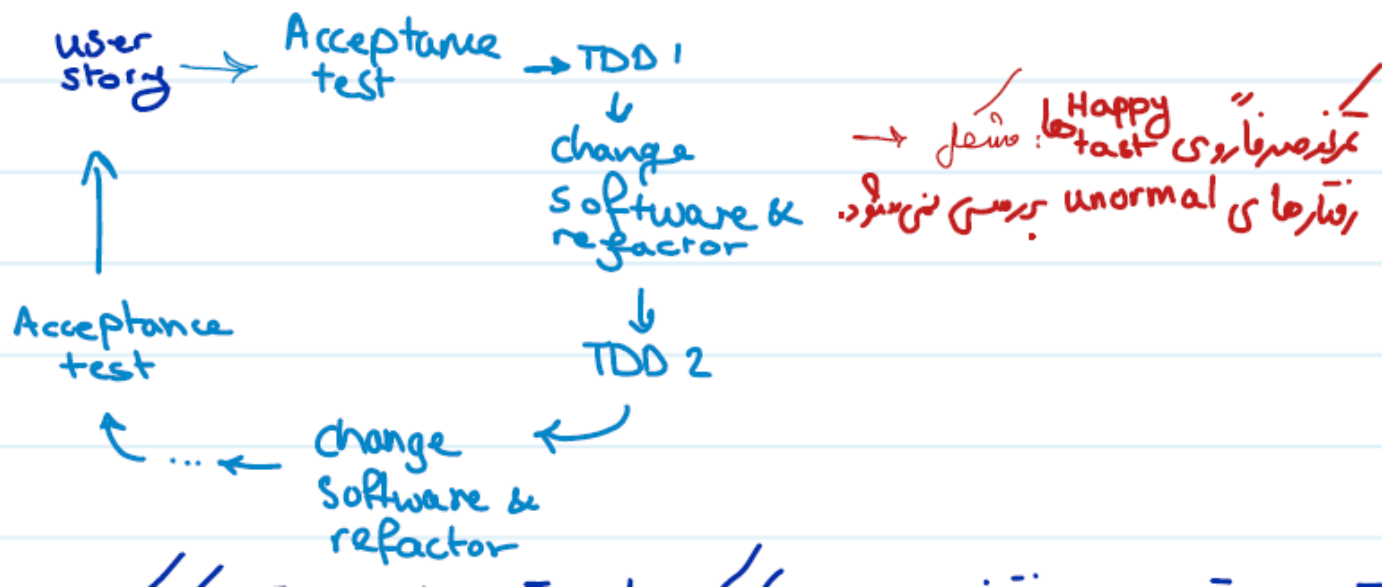 user
story
Acceptance
test
TDD 1
change
software &
refactor
TDD 2
change
software &
refactor
...
Acceptance
test
مشکل: تمرکز صرفاً روی Happy tast ها
رفتارهای unormal بررسی نمی‌شود.